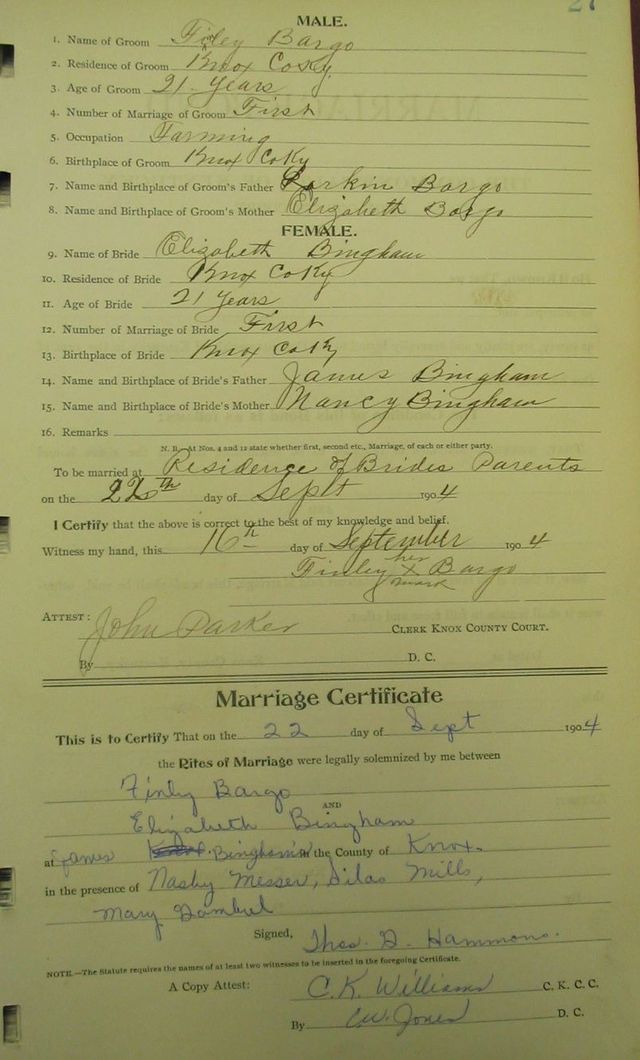 27
MALE.
1. Name of Groom Finley Bargo
2. Residence of Groom Knox Co Ky
3. Age of Groom 21 Years
4. Number of Marriage of Groom First
5. Occupation Farming
6. Birthplace of Groom Knox Co Ky
7. Name and Birthplace of Groom's Father Larkin Bargo
8. Name and Birthplace of Groom's Mother Elizabeth Bargo
FEMALE.
9. Name of Bride Elizabeth Bingham
10. Residence of Bride Knox Co Ky
11. Age of Bride 21 Years
12. Number of Marriage of Bride First
13. Birthplace of Bride Knox Co Ky
14. Name and Birthplace of Bride's Father James Bingham
15. Name and Birthplace of Bride's Mother Nancy Bingham
16. Remarks
N. B.—At Nos. 4 and 12 state whether first, second etc., Marriage, of each or either party.
To be married at Residence of Brides Parents
on the 22th day of Sept 1904
I Certify that the above is correct to the best of my knowledge and belief.
Witness my hand, this 16th day of September 1904
Finley his X mark Bargo
ATTEST: John Parker CLERK KNOX COUNTY COURT.
By D. C.
Marriage Certificate
This is to Certify That on the 22 day of Sept 1904
the Rites of Marriage were legally solemnized by me between
Finly Bargo
AND
Elizabeth Bingham
at James Bingham's in the County of Knox.
in the presence of Nasby Messer, Silas Mills,
Mary Gambrel
Signed, Thos. D. Hammons.
NOTE.—The Statute requires the names of at least two witnesses to be inserted in the foregoing Certificate.
A Copy Attest: C. K. Williams C. K. C. C.
By W. Jones D. C.